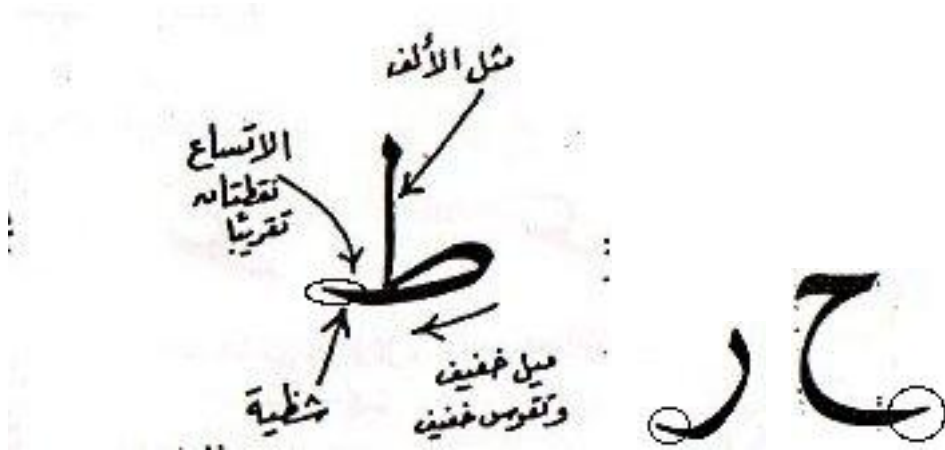 مثل الألف
الاتساع
نقطتان
تقريبًا
ط
شظية
ميل خفيف
وتقوس خفيف
ح ر